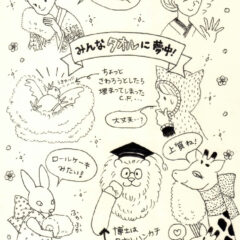 みんなタオルに夢中!
ちょっと
さわろうとしたら
埋まってしまった
C.P.…
大丈夫…?
ロールケーキ
みたい!
上質ね!
博士は